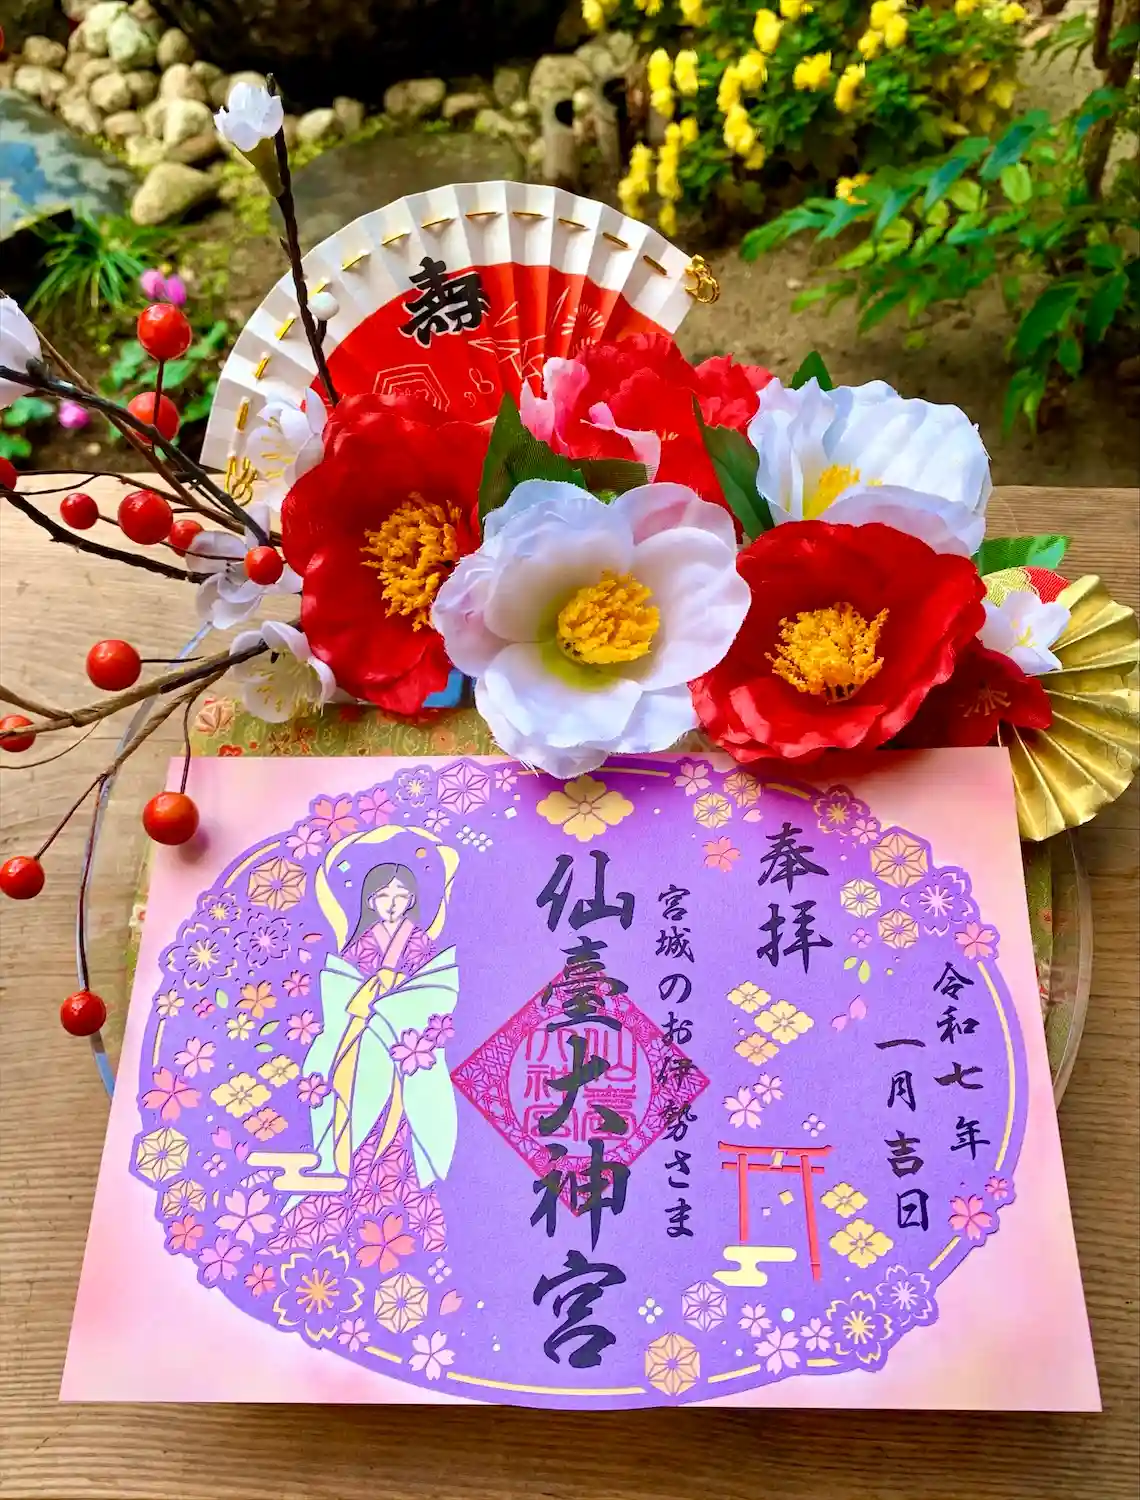 寿
奉拝
令和七年
一月吉日
宮城のお伊勢さま
仙臺大神宮